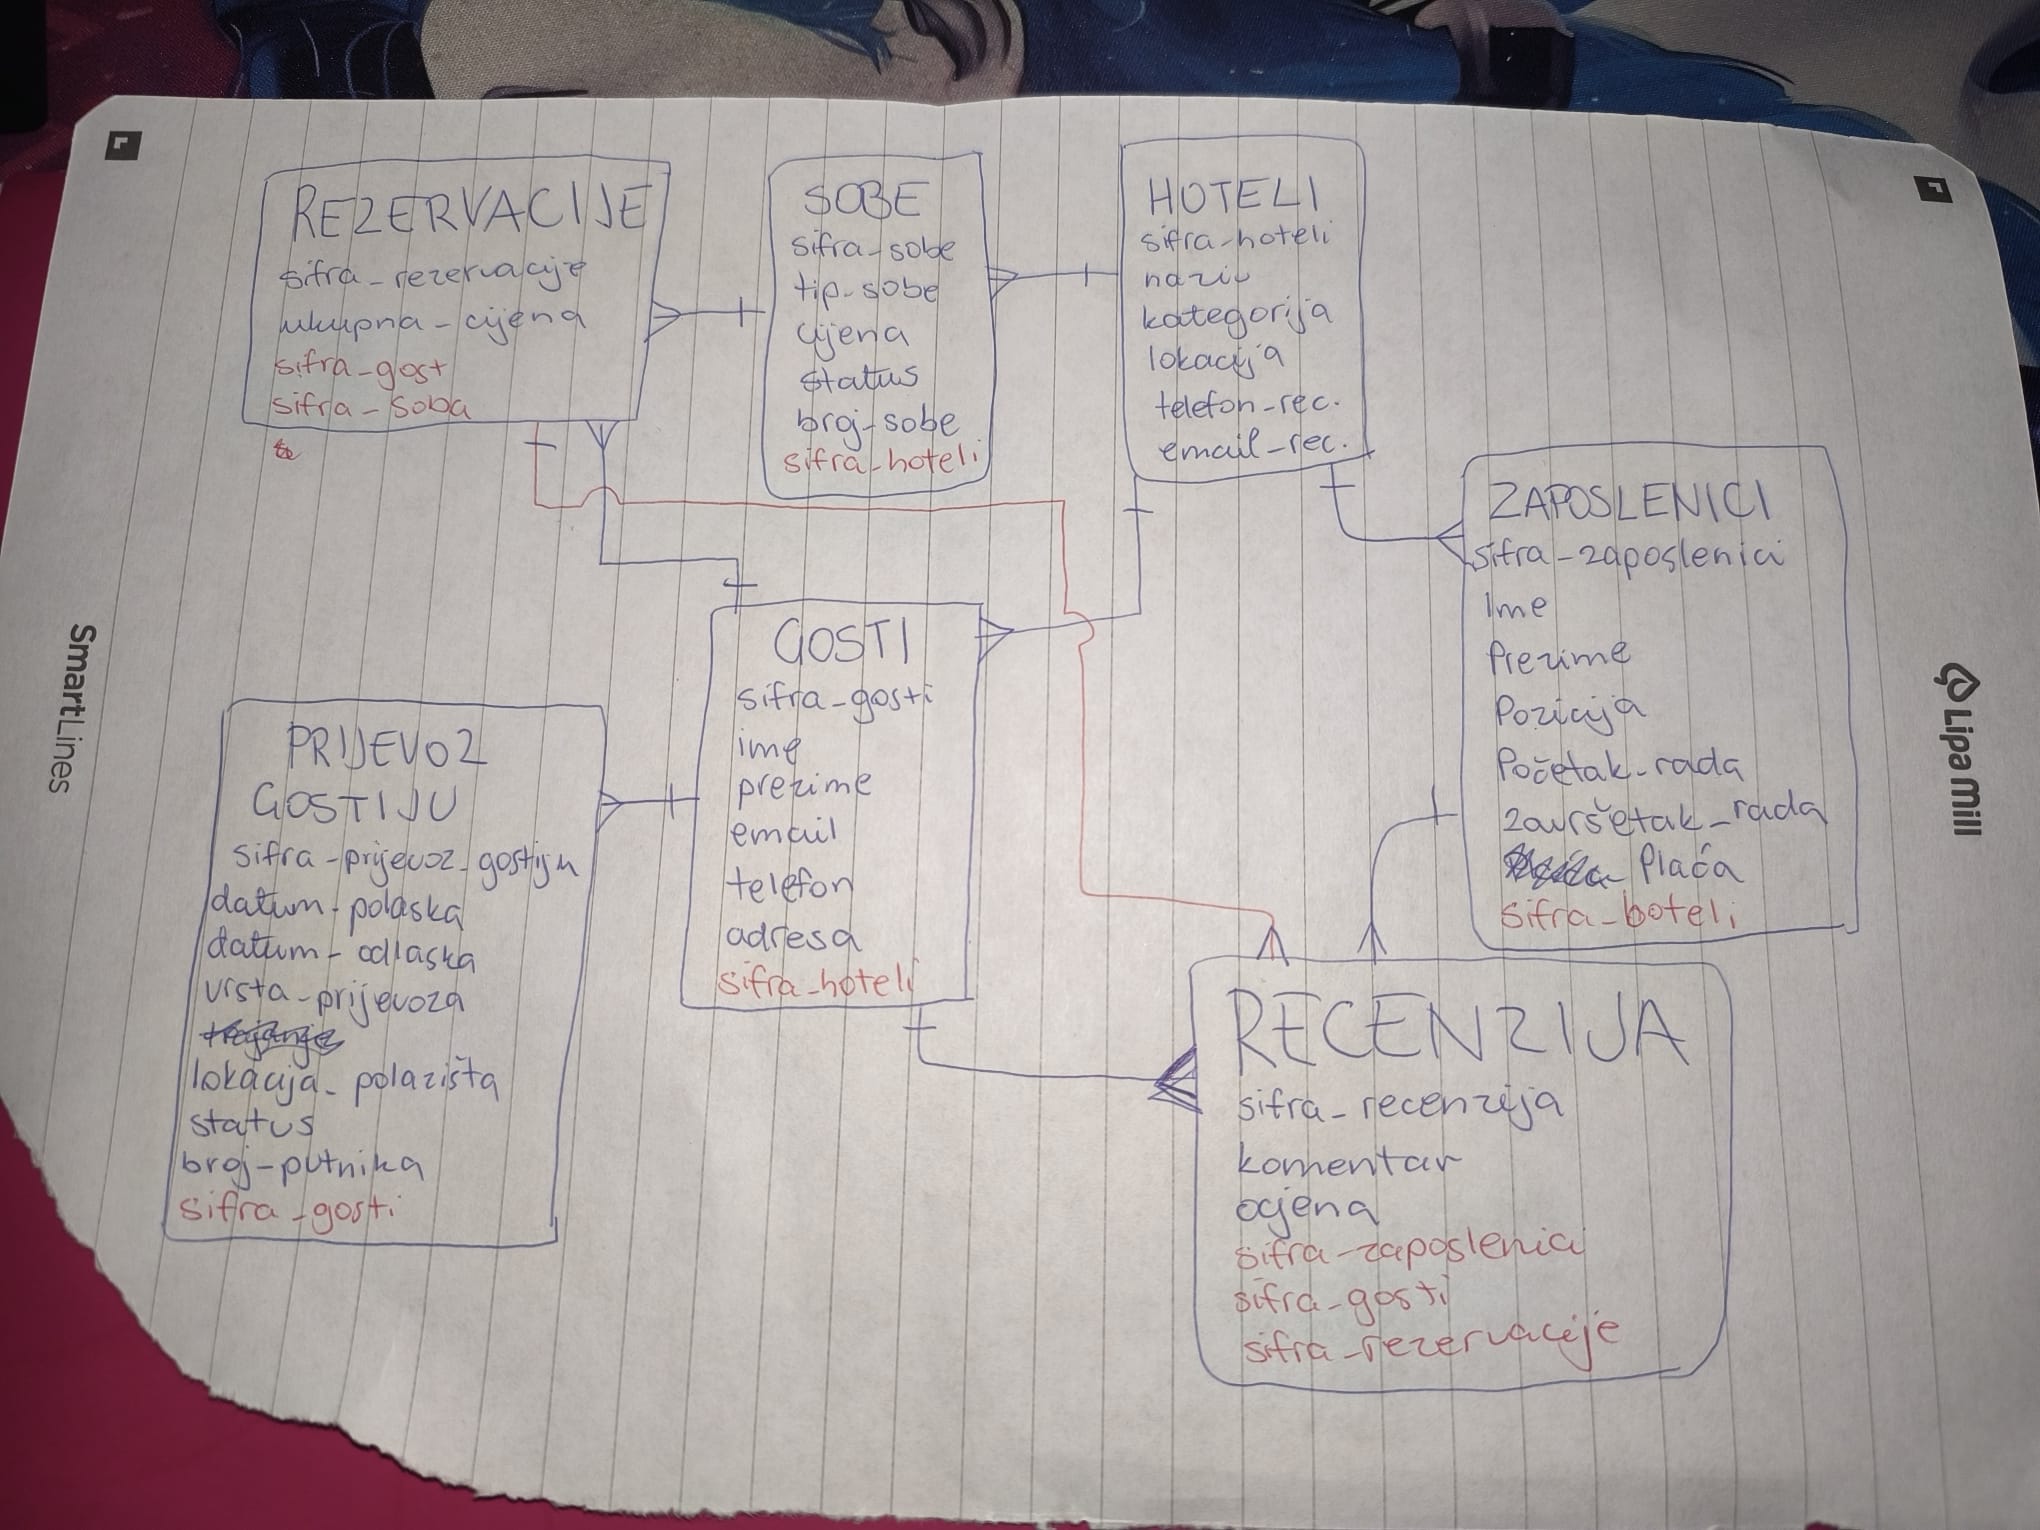 REZERVACIJE
sifra_rezervacije
ukupna_cijena
sifra_gost
sifra_soba
SOBE
sifra_sobe
tip_sobe
cijena
status
broj_sobe
sifra_hoteli
HOTELI
sifra_hoteli
naziv
kategorija
lokacija
telefon_rec.
email_rec.
ZAPOSLENICI
sifra_zaposlenici
Ime
Prezime
Pozicija
Početak_rada
završetak_rada
Plaća
sifra_hoteli
GOSTI
sifra_gosti
ime
prezime
email
telefon
adresa
sifra_hoteli
PRIJEVOZ
GOSTIJU
sifra_prijevoz_gostiju
datum_polaska
datum_odlaska
vrsta_prijevoza
lokacija_polazišta
status
broj_putnika
sifra_gosti
RECENZIJA
sifra_recenzija
komentar
ocjena
sifra_zaposlenici
sifra_gosti
sifra_rezervacije
SmartLines
Lipa Mill